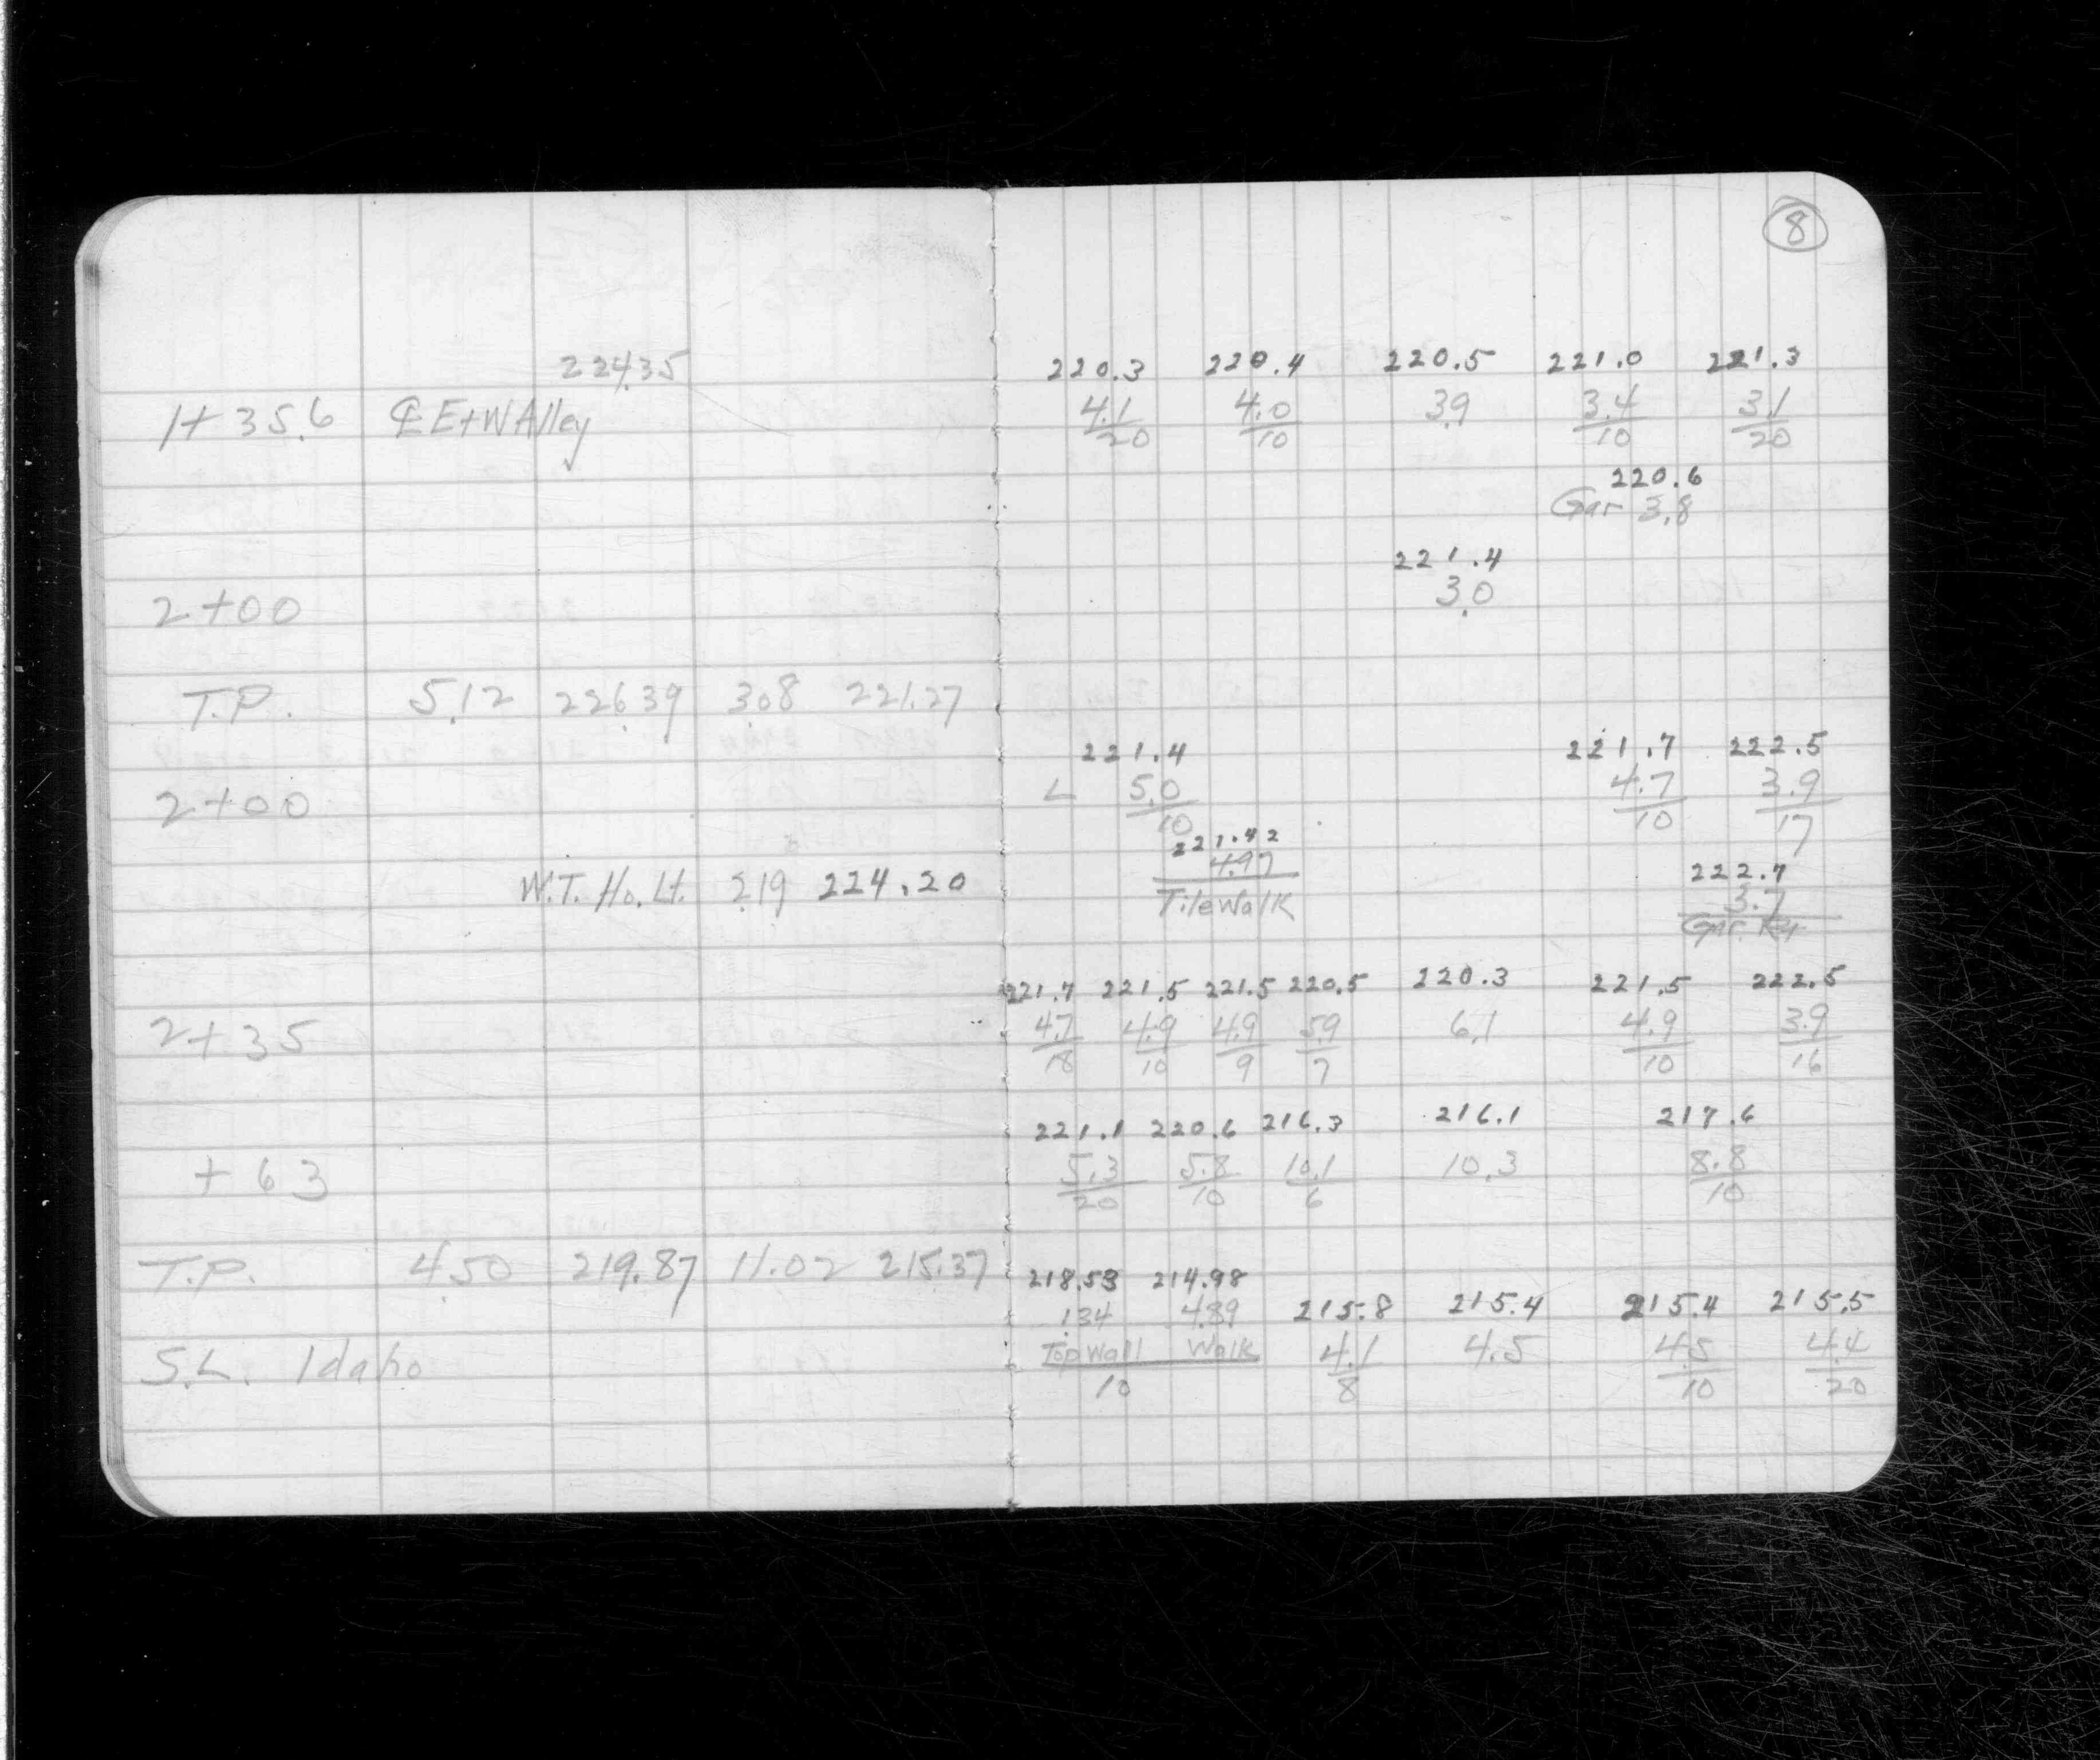 8
224.35 220.3 220.4 220.5 221.0 221.3
1+35.6 ℄ E+W Alley 4.1/20 4.0/10 3.9 3.4/10 3.1/20
220.6
Gar 3.8
221.4
2+00 3.0
T.P. 5.12 226.39 3.08 221.27
221.4 221.7 222.5
2+00 L 5.0/10 4.7/10 3.9/17
221.42 222.7
W.T. Ho. Lt. 2.19 224.20 4.97 3.7
Tile Walk Gar.
221.7 221.5 221.5 220.5 220.3 221.5 222.5
2+35 4.7/18 4.9/10 4.9/9 5.9/7 6.1 4.9/10 3.9/16
221.1 220.6 216.3 216.1 217.6
+63 5.3/20 5.8/10 10.1/6 10.3 8.8/10
T.P. 4.50 219.87 11.02 215.37
218.53 214.98 215.8 215.4 215.4 215.5
1.34 4.89
S.L. Idaho Top Wall Walk 4.1/8 4.5 4.5/10 4.4/20
10